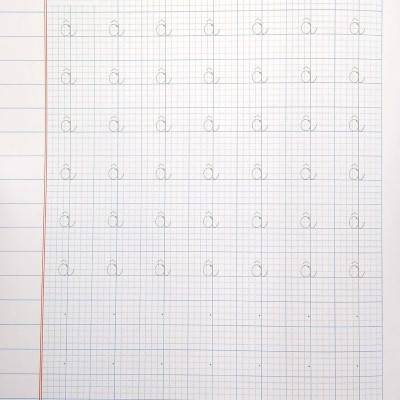 â â â â â â â
â â â â â â â
â â â â â â â
â â â â â â â
â â â â â â â
â â â â â â â